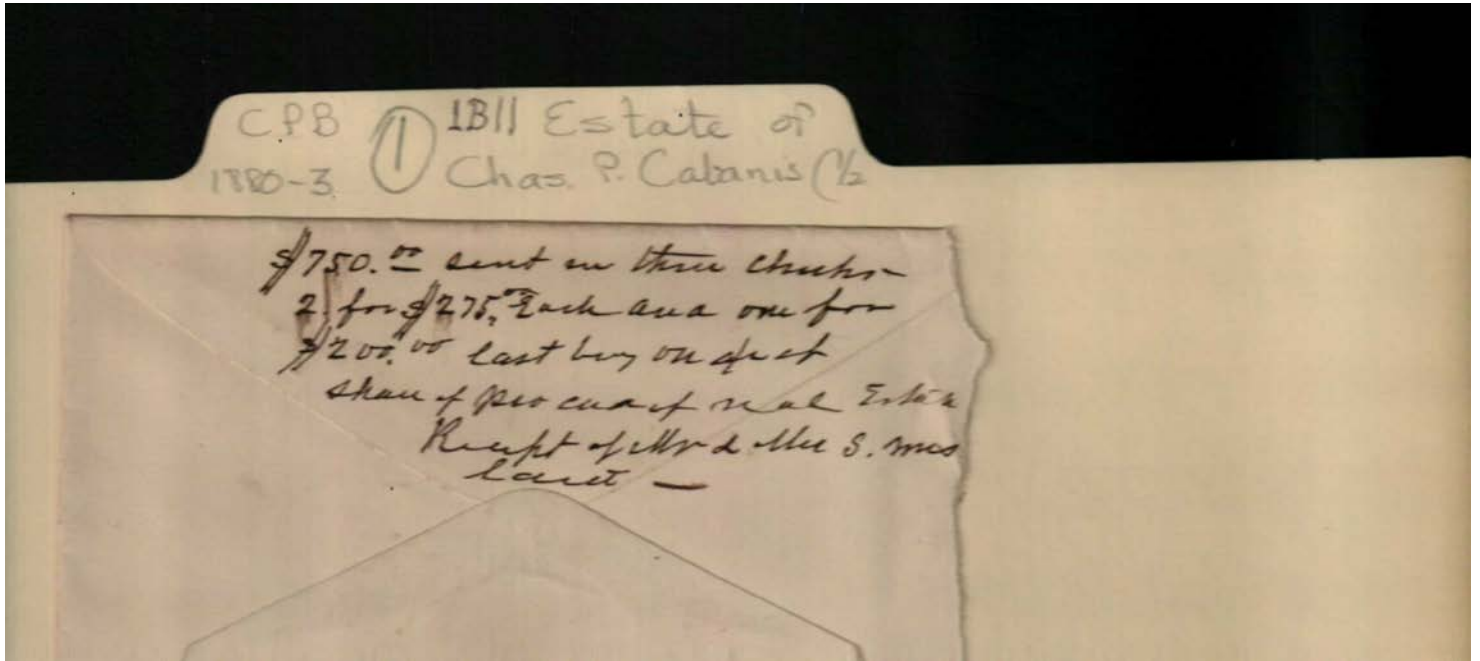 CPB ① 1B11 Estate of
1880-3 Chas. P. Cabanis (1/2
$750.00 sent in three checks
2 for $275.00 Each and one for
$200.00 last being on act
share of proceed of real Estate
Receipt of Mr & Mrs S.